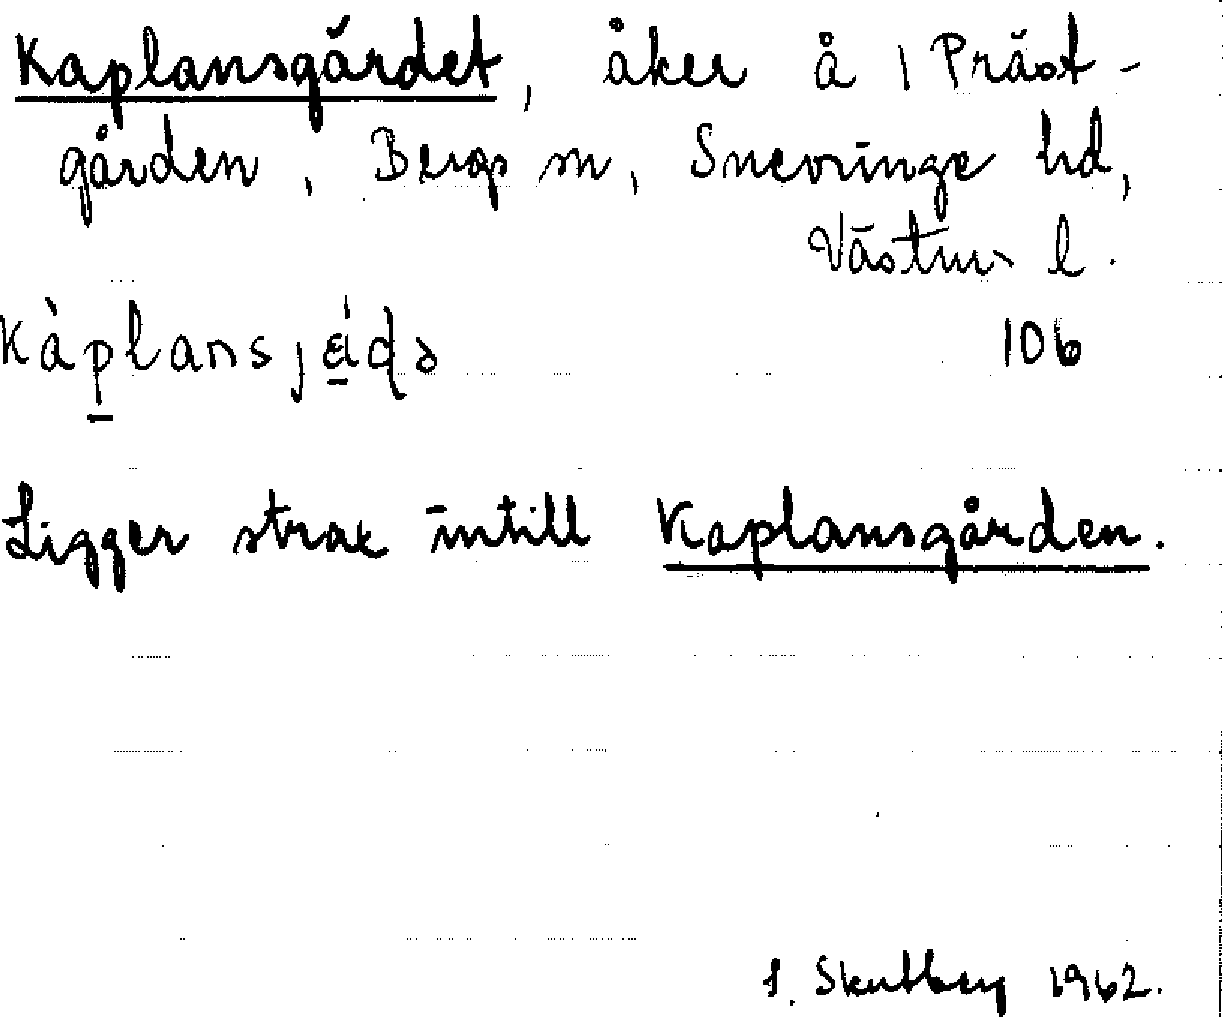 Kaplansgärdet, åker å 1 Präst-
gården, Bergs sn, Snevringe hd,
Västm l.
106
Ligger strax intill Kaplansgården.
S. Skutberg 1962.